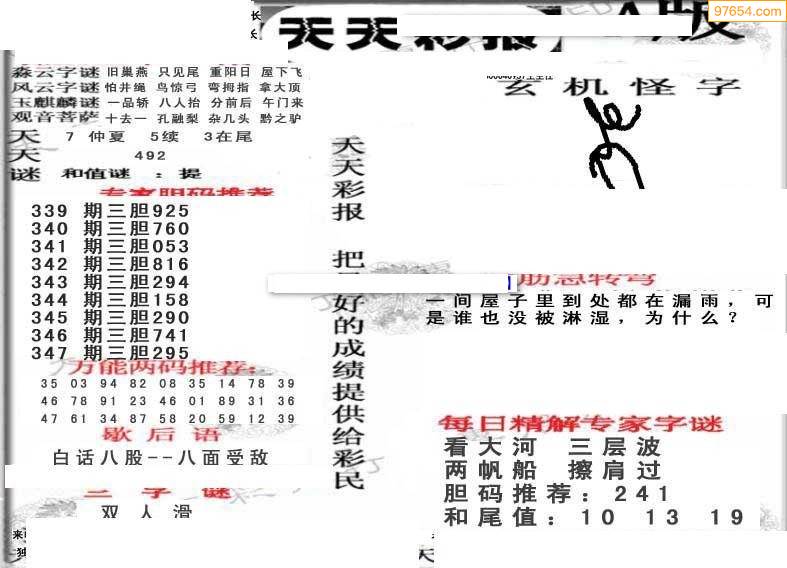 97654.com
天天彩报
A版
森云字谜 旧巢燕 只见尾 重阳日 屋下飞
风云字谜 怕井绳 鸟惊弓 弯拇指 拿大顶
玉麒麟谜 一品轿 八人抬 分前后 午门来
观音菩萨 十去一 孔融梨 杂几头 黔之驴
天 7 仲夏 5续 3在尾
天 492
谜 和值谜 ：提
专家胆码推荐
339 期三胆925
340 期三胆760
341 期三胆053
342 期三胆816
343 期三胆294
344 期三胆158
345 期三胆290
346 期三胆741
347 期三胆295
万能两码推荐：
35 03 94 82 08 35 14 78 39
46 78 91 23 46 01 89 31 36
47 61 34 87 58 20 59 12 39
歇后语
白话八股--八面受敌
三字谜
双人滑
天天彩报 把最好的成绩提供给彩民
玄机怪字
脑急转弯
一间屋子里到处都在漏雨，可
是谁也没被淋湿，为什么？
每日精解专家字谜
看大河 三层波
两帆船 擦肩过
胆码推荐：241
和尾值：10 13 19